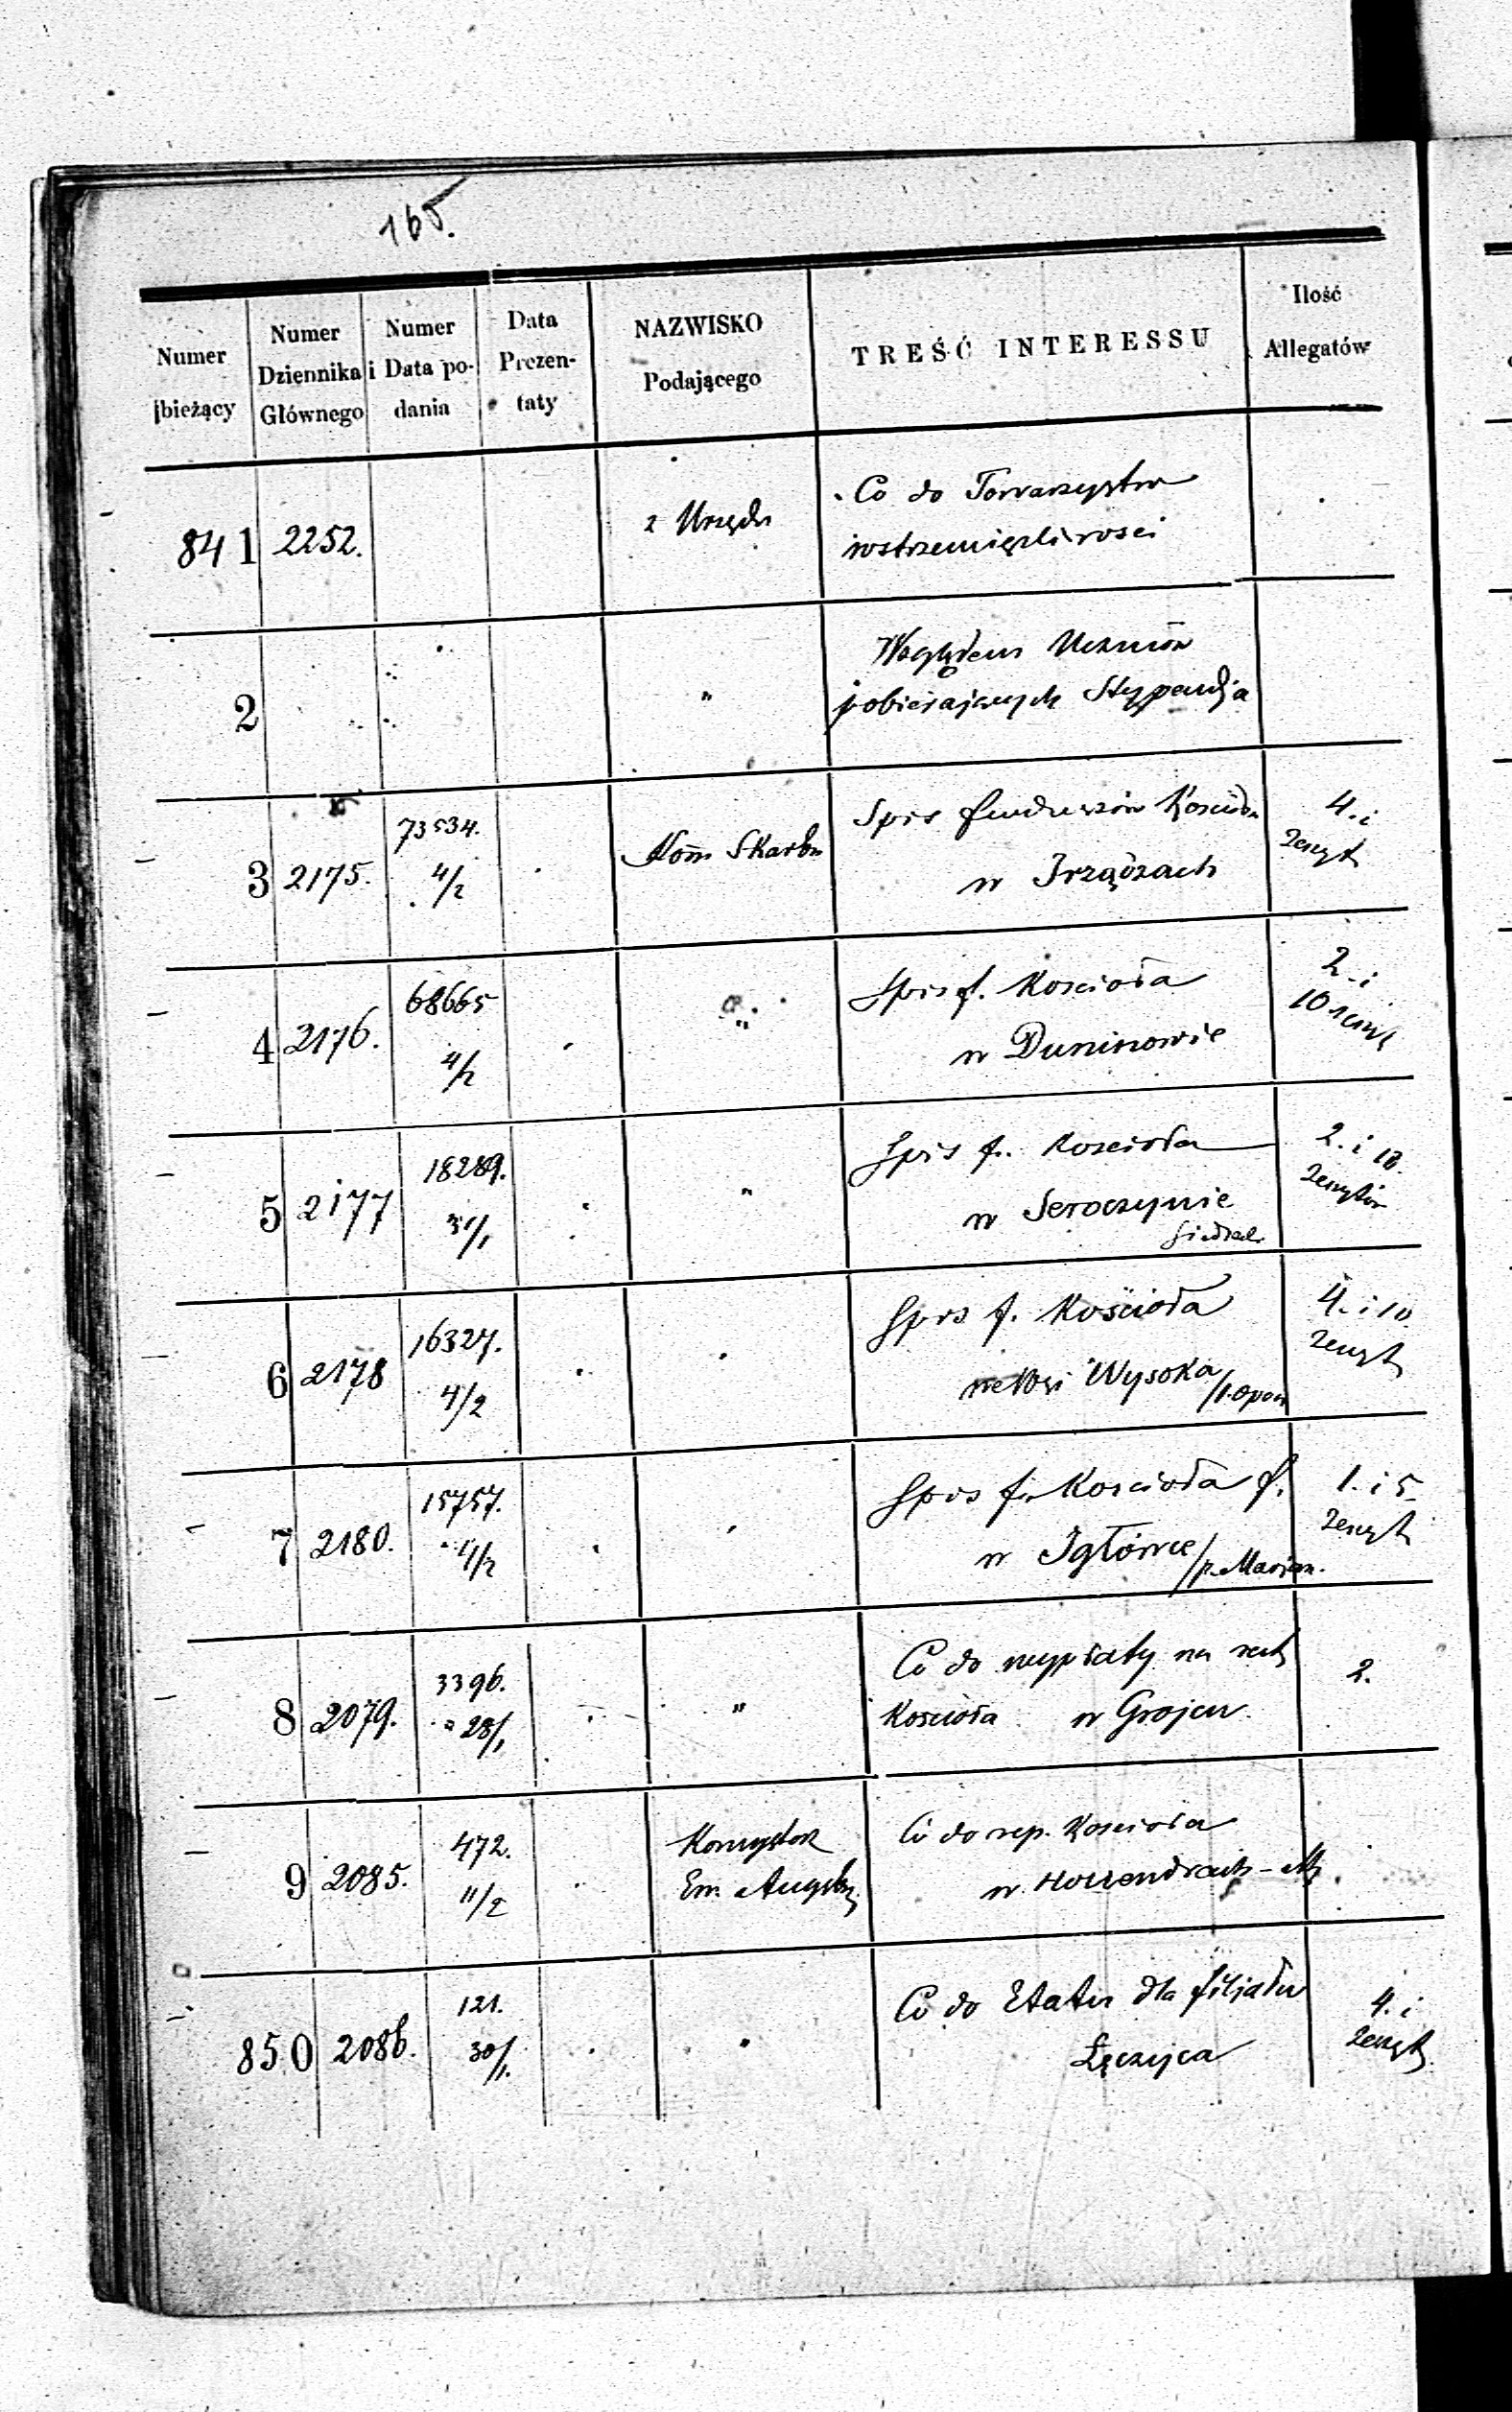 165.
Numer bieżący
Numer Dziennika Głównego
Numer i Data podania
Data Prezentaty
NAZWISKO Podającego
TREŚĆ INTERESSU
Ilość Allegatów
841 2252. z Urzędu Co do Towarzystw
wstrzemięźliwosci
2 " Względem Uczniów
pobierajacych Stypendja
3 2175. 73534. 4/2 Kom Skarbu Spis funduszów Kościoła 4. i
w Irządzach zeszyt
4 2176. 68665 4/2 " Spis f. Koscioła 2. i
w Duninowie 10 zeszyt
5 2177 18289. 31/1 " Spis f. Koscioła 2. i 18.
w Seroczynie zeszytów
Siedlec.
6 2178 16327. 4/2 Spis f. Kościoła 4. i 10
we Wsi Wysoka /p. Opocz zeszyt
7 2180. 15757. 4/2 Spis f. Koscioła f. 1. i 5.
w Igłówce /p. Marjam. zeszyt
8 2079. 3396. 28/1 " Co do wypłaty na rest 2.
Kościoła w Grojcu.
9 2085. 472. 11/2 Konsystorz Co do rep. Koscioła
Ew. Augsb. w
850 2086. 121. 30/1. " Co do Etatu dla filjału 4. i
Łęczyca zeszyt